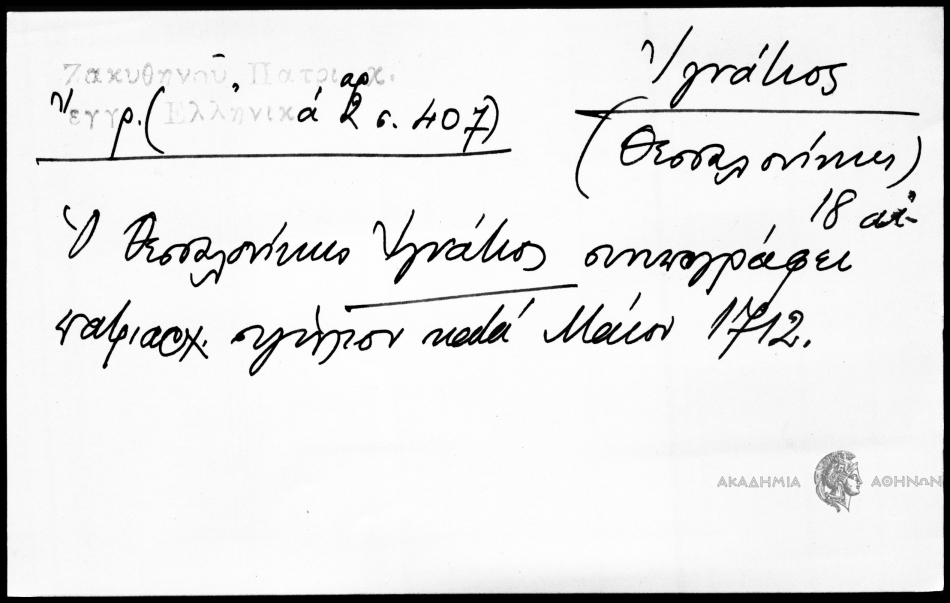 Ζακυθηνοῦ Πατριαρχ.
ἔγγρ. (Ἑλληνικά αρ 2 σ. 407)
Ἰγνάτιος
(Θεσσαλονίκης)
18 αἰ.
Ὁ Θεσσαλονίκης Ἰγνάτιος συνυπογράφει
πατριαρχ. σιγίλλιον κατά Μάϊον 1712.
ΑΚΑΔΗΜΙΑ ΑΘΗΝΩΝ